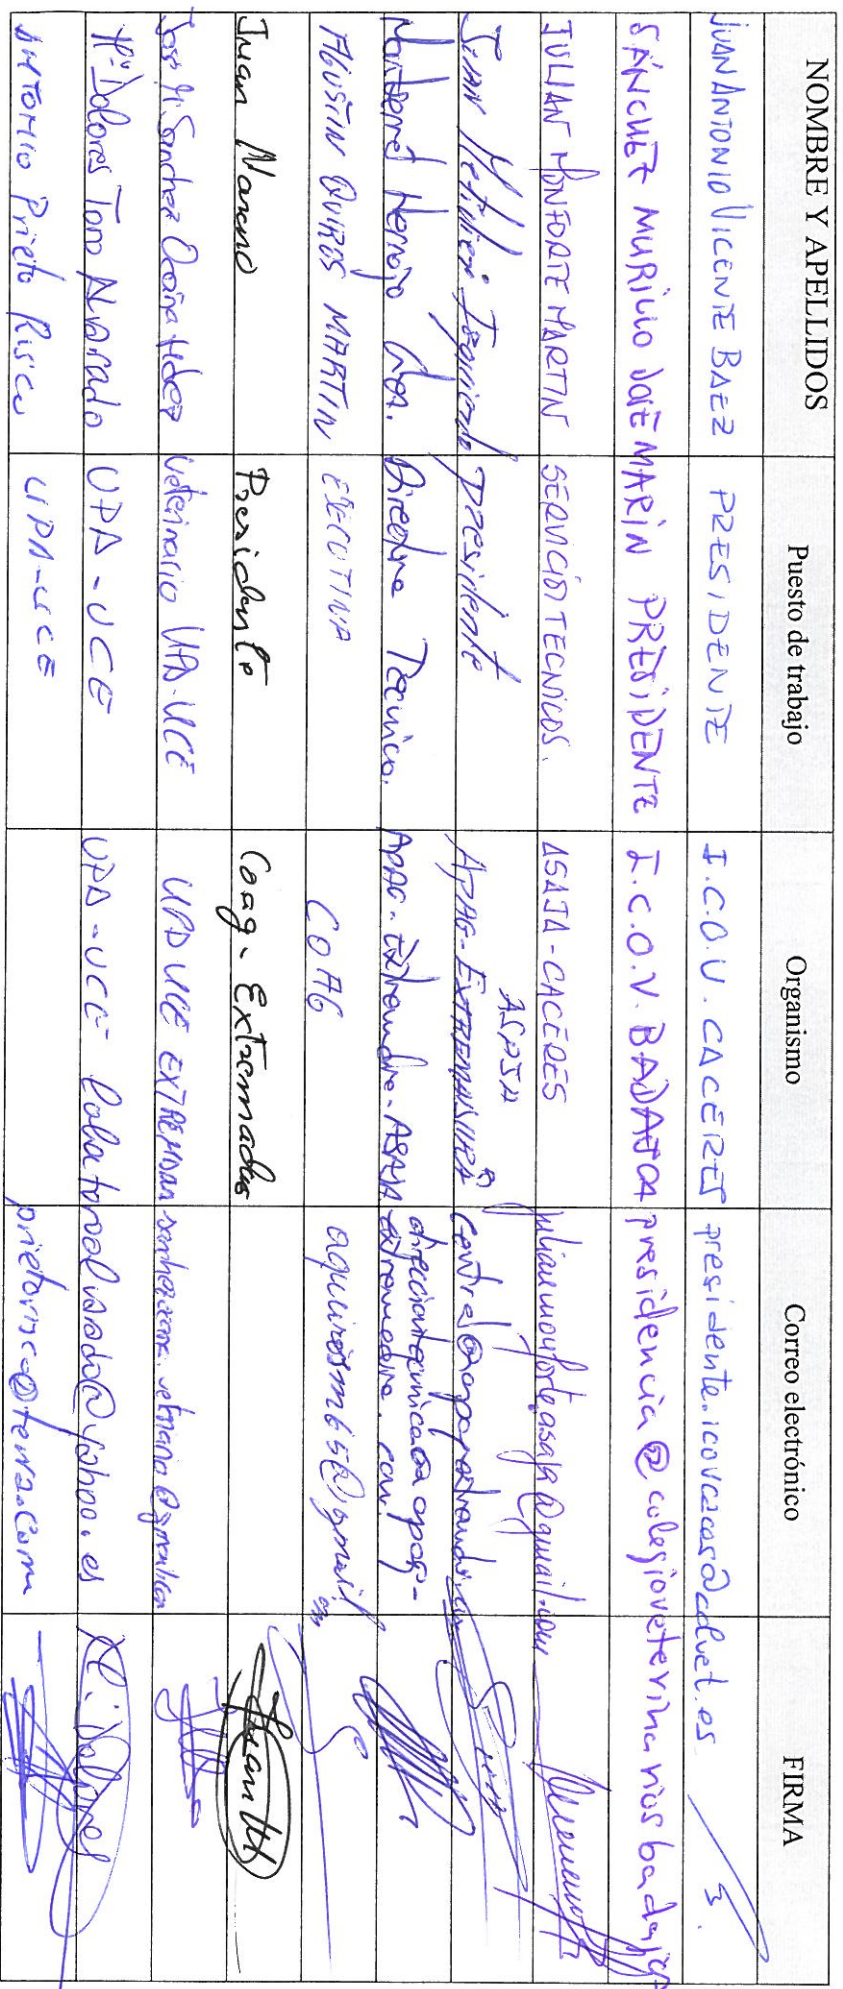 NOMBRE Y APELLIDOS Puesto de trabajo Organismo Correo electrónico FIRMA
JUAN ANTONIO VICENTE BAEZ PRESIDENTE I.C.O.V. CACERES presidente.icovcaceres@colvet.es
SÁNCHEZ MURILLO JOSÉ MARÍN PRESIDENTE I.C.O.V. BADAJOZ presidencia@colegioveterinariosbadajoz
JULIAN MONFORTE MARTIN SERVICIOS TECNICOS. ASAJA-CACERES julianmonforte.asaja@gmail.com
JUAN Metidieri Izquierdo Presidente APAG-EXTREMADURA ASAJA
Montserrat Hernajo Directora Técnica. APAG-Extremadura-ASAJA
AGUSTIN QUIROS MARTIN EJECUTIVA COAG aquirosm65@gmail
Juan Moreno Presidente Coag-Extremadura Juan
José M. Sánchez Ocaña Hdez Veterinario UPA-UCE UPA UCE EXTREMADURA
Mª Dolores Toro Alvarado UPA-UCE UPA-UCE @yahoo.es Mª Dolores
ANTONIO Prieto Risco UPA-UCE